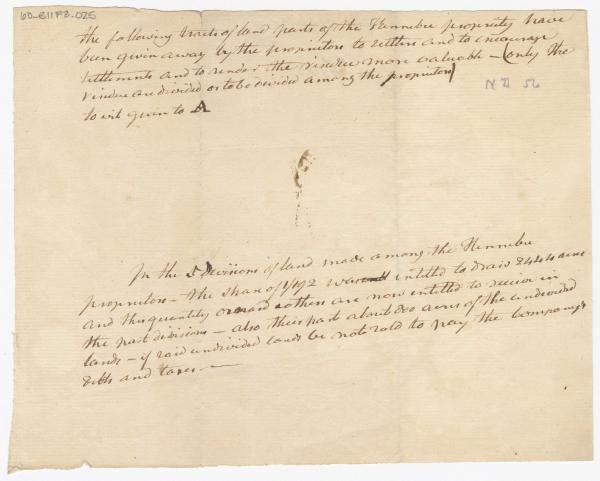 60-E11F3-025
the following tracts of land parts of the Kennebec propriety have
been given away by the proprietors to settlers and to encourage
settlements and to render the residue more valuable – (only the
residue are divided or to be divided among the proprietors)
to wit given to A
ND 56
In the 5 Divisions of land made among the Kennebec
proprietors – the share of 1/192 was entitled to draw 2444 acres
and this quantity and others are now entitled to receive in
the past divisions – also their part about 800 acres of the undivided
lands – if said undivided lands be not sold to pay the Companys
debts and taxes –